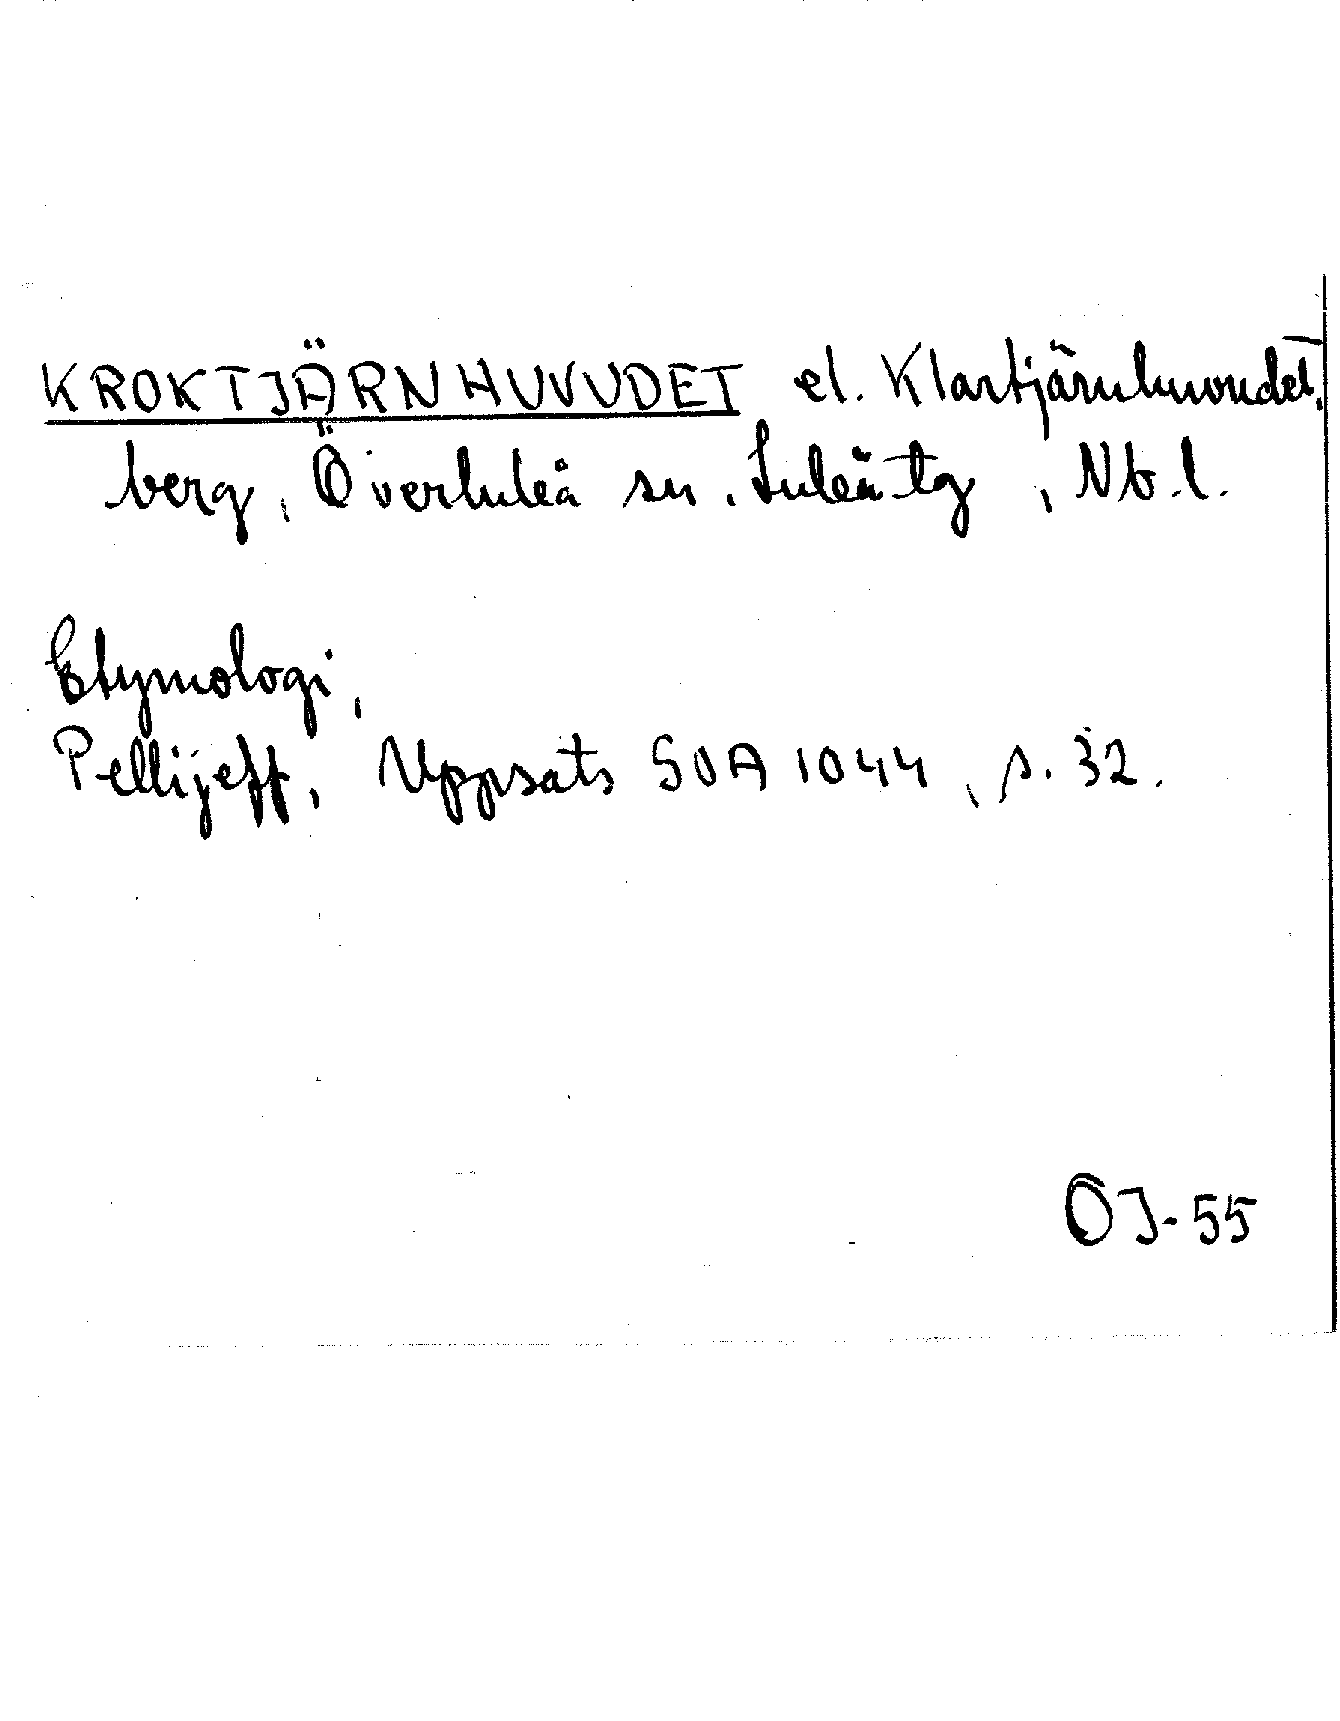 KROKTJÄRNHUVUDET el. Klartjärnhuvudet,
berg, Överluleå sn. Luleå tg, Nb.l.
Etymologi,
Pellijeff, Uppsats SOA 1044, s. 32.
ÖJ-55